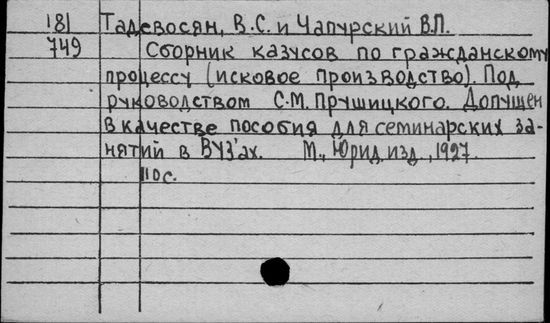 181 Тадевосян, В.С. и Чапурский В.П.
749 Сборник казусов по гражданскому
процессу (исковое производство). Под
руководством С.М. Прушицкого. Допущен
в качестве пособия для семинарских за-
нятий в ВУЗ'ах. М., Юрид. изд., 1927.
110 с.